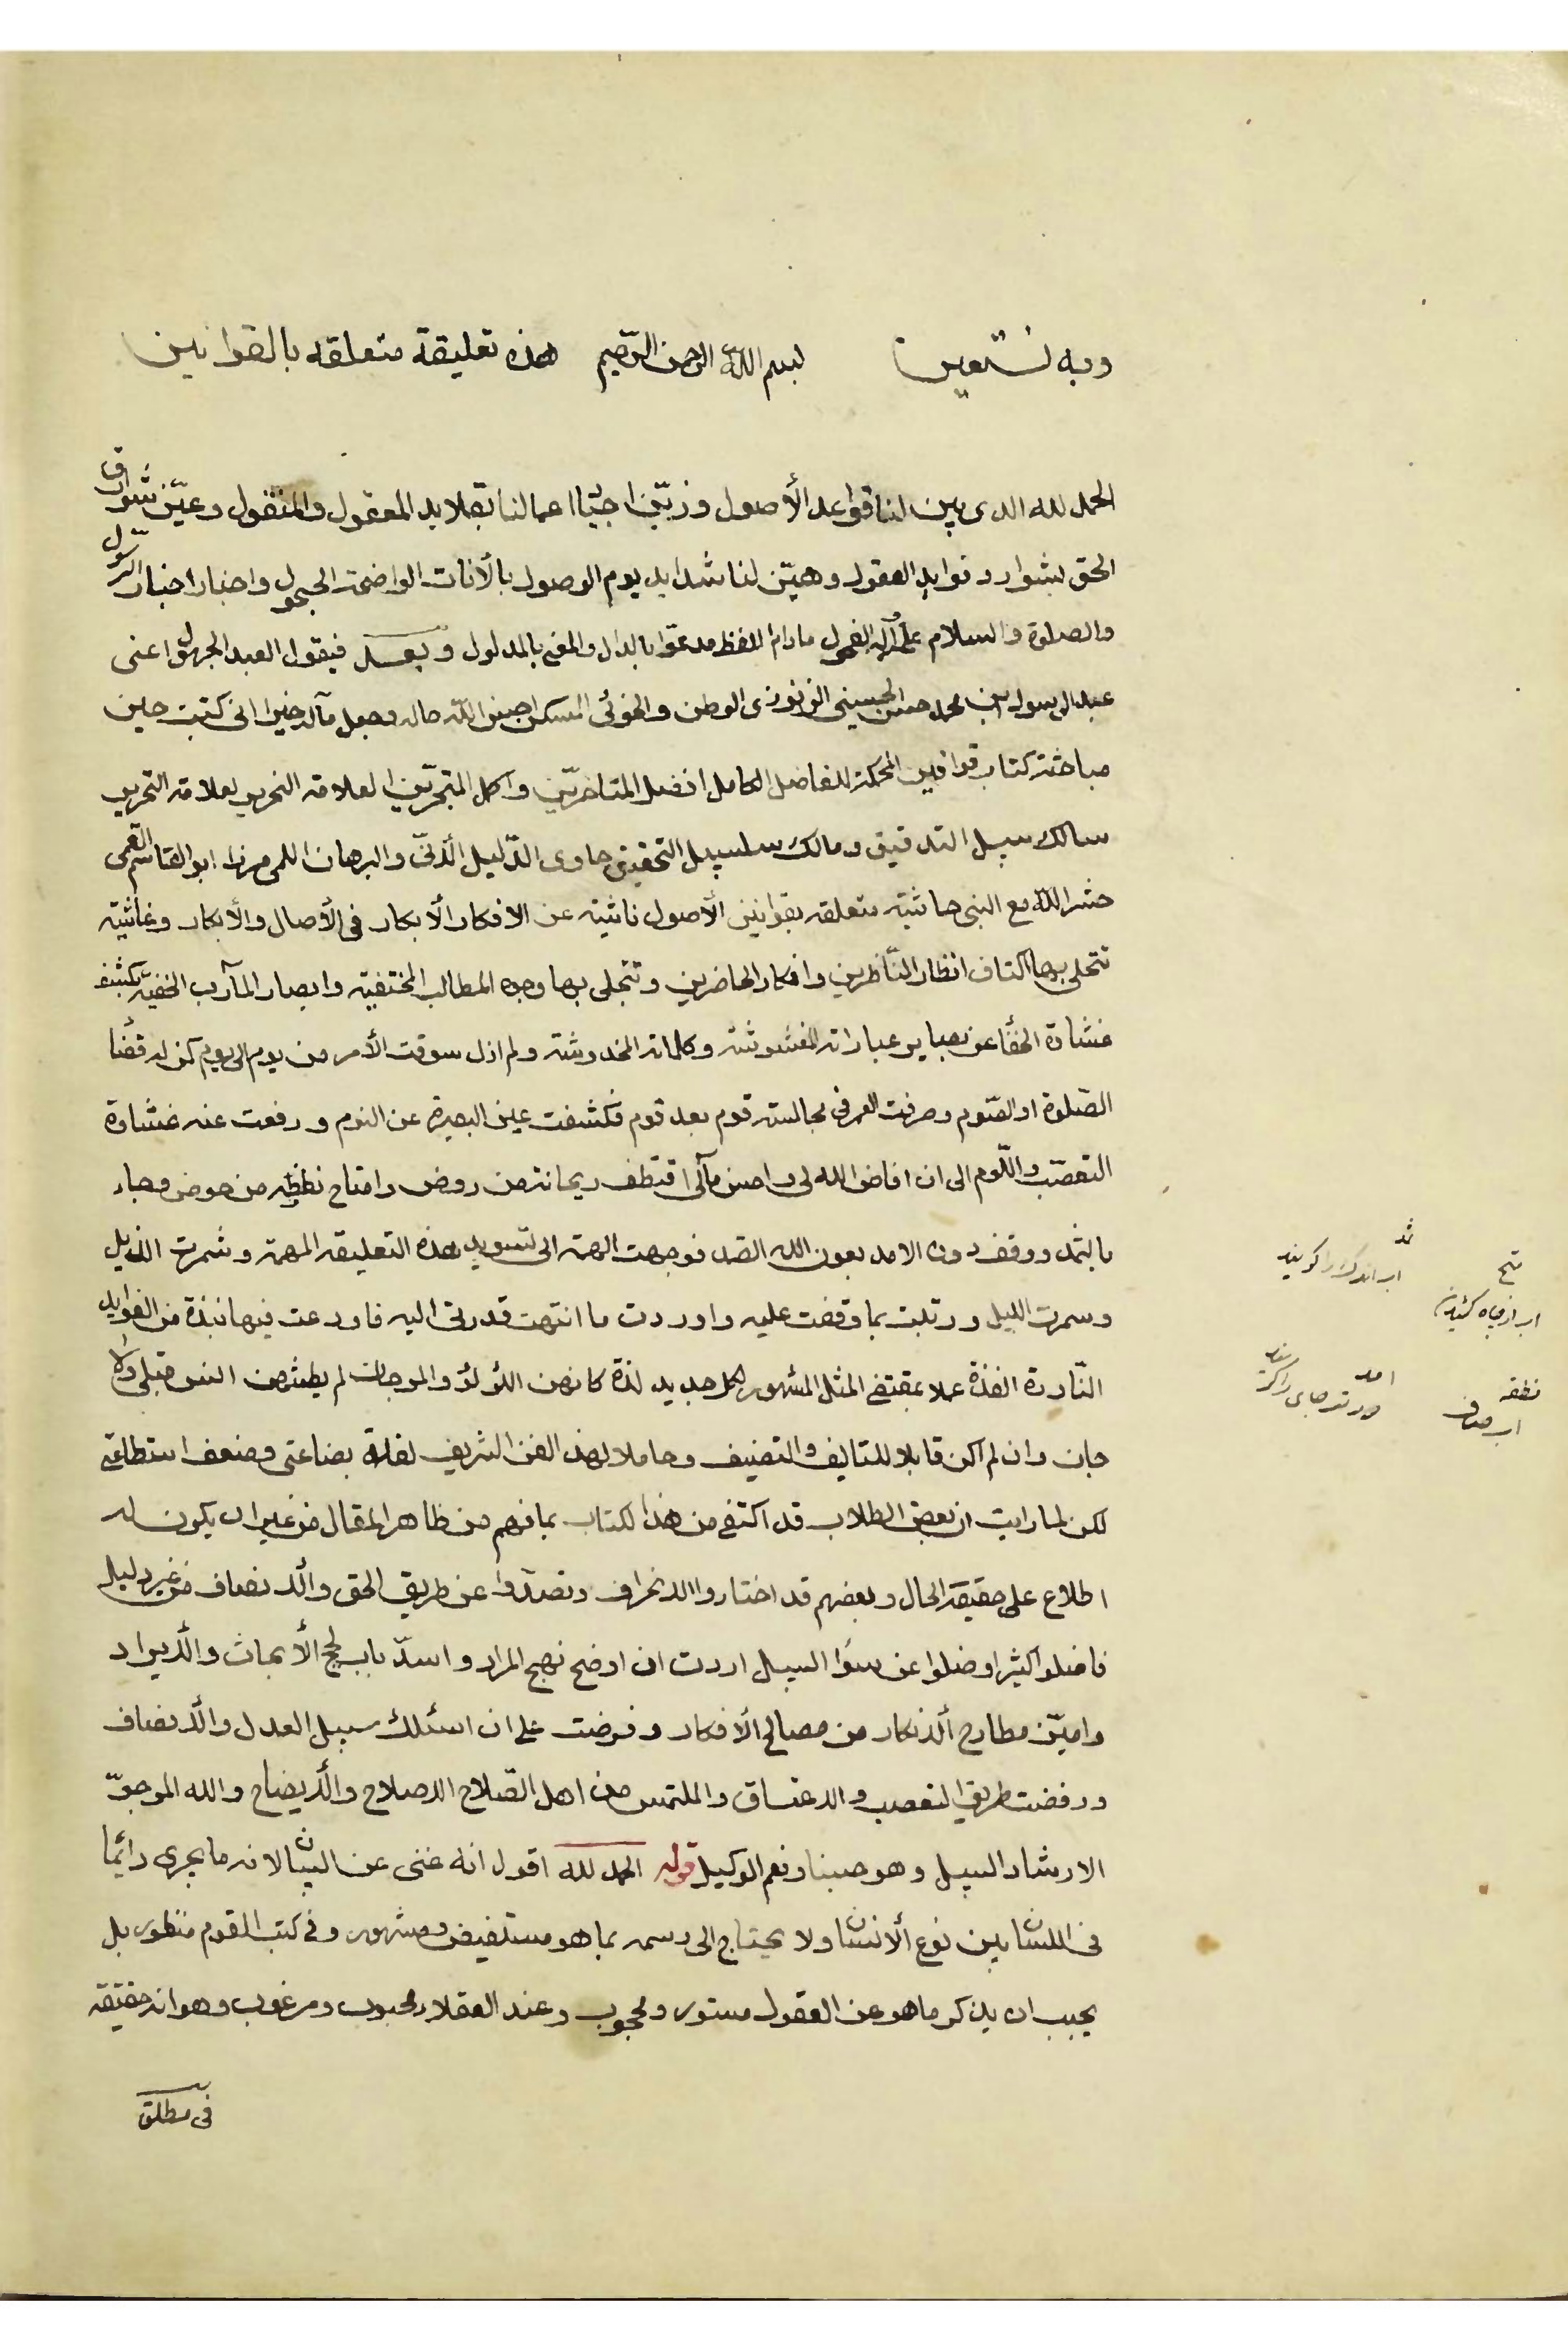 وبه نستعين بسم الله الرحمن الرحيم هذه تعليقة متعلقه بالقوانين
الحمد لله الذى بين لنا قواعد الأصول وزيّن اجياد اعمالنا بقلايد المعقول والمنقول وعيّن شوارق
الحق بشوارد فوايد العقول وهيّن لنا شدايد يوم الوصول بالأنات الواضحة الحجول واخبار اخبار الرسول
والصلوة والسلام على وآله الفحول مادام اللفظ مدعوّا بالدال والمعنى بالمدلول وبعد فيقول العبد الجهول اعنى
عبد الرسول بن محمد حسن الحسينى الزنوزى الوطن والخوئى المسكن احسن الله حاله وجعل مآله خيرا انى كتبت حين
مباحثة كتاب قوانين المحكمة للفاضل الكامل افضل المتاخرين واكمل المتبحرّين العلامة النحرير لعلامة التحرير
سالك سبيل التدقيق ومالك سلسبيل التحقيق حاوى الدّليل الأنىّ والبرهان اللمى ميرزا ابو القاسم القمى
حشره الله مع النبى حاشية متعلقه بقوانين الأصول ناشية عن الافكار الأبكار فى الأصال والأبكار وغاشية
تتحلى بها اكتاف انظار النّاظرين وافكار الحاضرين وتتجلى بها وجوه المطالب المختفية وابصار المآرب الخفيّة بكشف
غشاوة الخفأ عن بصاير عباراته المغشوشة وكلماته المخدوشة ولم ازل سوقت الأمر من يوم الى يوم كمن له قضأ
الصّلوة او الصّوم وصرفت العمر فى مجالسة قوم بعد قوم فكشفت عين البصيرة عن النوم ورفعت عنه غشاوة
التعصّب واللّوم الى ان افاض الله لى واحسن مآلى اقتطف ريحانة من روض وامتاح نطفة من حوض وجاء
بالثمد ووقف دون الامد بعون الله الصّمد فوجهت الهمة الى تسويد هذه التعليقه المهمة وشمرت الذيل
وسمرت الليل ورتبت بما وقفت عليه واوردت ما انتهت قدرتى اليه فاودعت فيها نبذة من الفوايد
النّادرة الفذة عملا بمقتضى المثل المشهور لكل جديد لذة كانهن اللؤلؤ والمرجان لم يطمثهن انس قبلى ولا
جان وان لم اكن قابلا للتاليف والتصنيف وحاملا لهذ الفن الشريف لقلة بضاعتى وضعف استطاعتى
لكن لما رايت ان بعض الطلاب قد اكتفى من هذا الكتاب بما فهم من ظاهر المقال من غير ان يكون له
اطلاع على حقيقة الحال وبعضهم قد اختاروا الانحراف وتصدّوا عن طريق الحق والأنصاف من غير دليل
فاضلو اكثيرا وضلوا عن سوٰا السبيل اردت ان اوضح نهج المراد واسدّ باب لجج الأبحاث والأيراد
واميّز مطارح الأنكار من مصالح الأفكار وفرضت على ان اسئلك سبيل العدل والأنصاف
ورفضت طريق التعصب والاعتساق والملتمس من اهل الصّلاح الاصلاح والأيضاح والله المرجوّ
الارشاد السبيل وهو حسبنا ونعم الوكيل قوله الحمد لله اقول انه غنى عن البيان لانه ما يجرى دائما
فى اللسان بين نوع الأنسان ولا يحتاج الى رسمه بما هو مستفيض ومشهور وفى كتب القوم منظور بل
يجب ان يذكر ما هو عن العقول مستور ومحجوب وعند العقلاء محبوب ومرغوب وهو انه حقيقة
فى مطلق
ثمد
اب اندک را گویند
متح
اب از چاه کشیدن
امد
نطفه
اب صاف